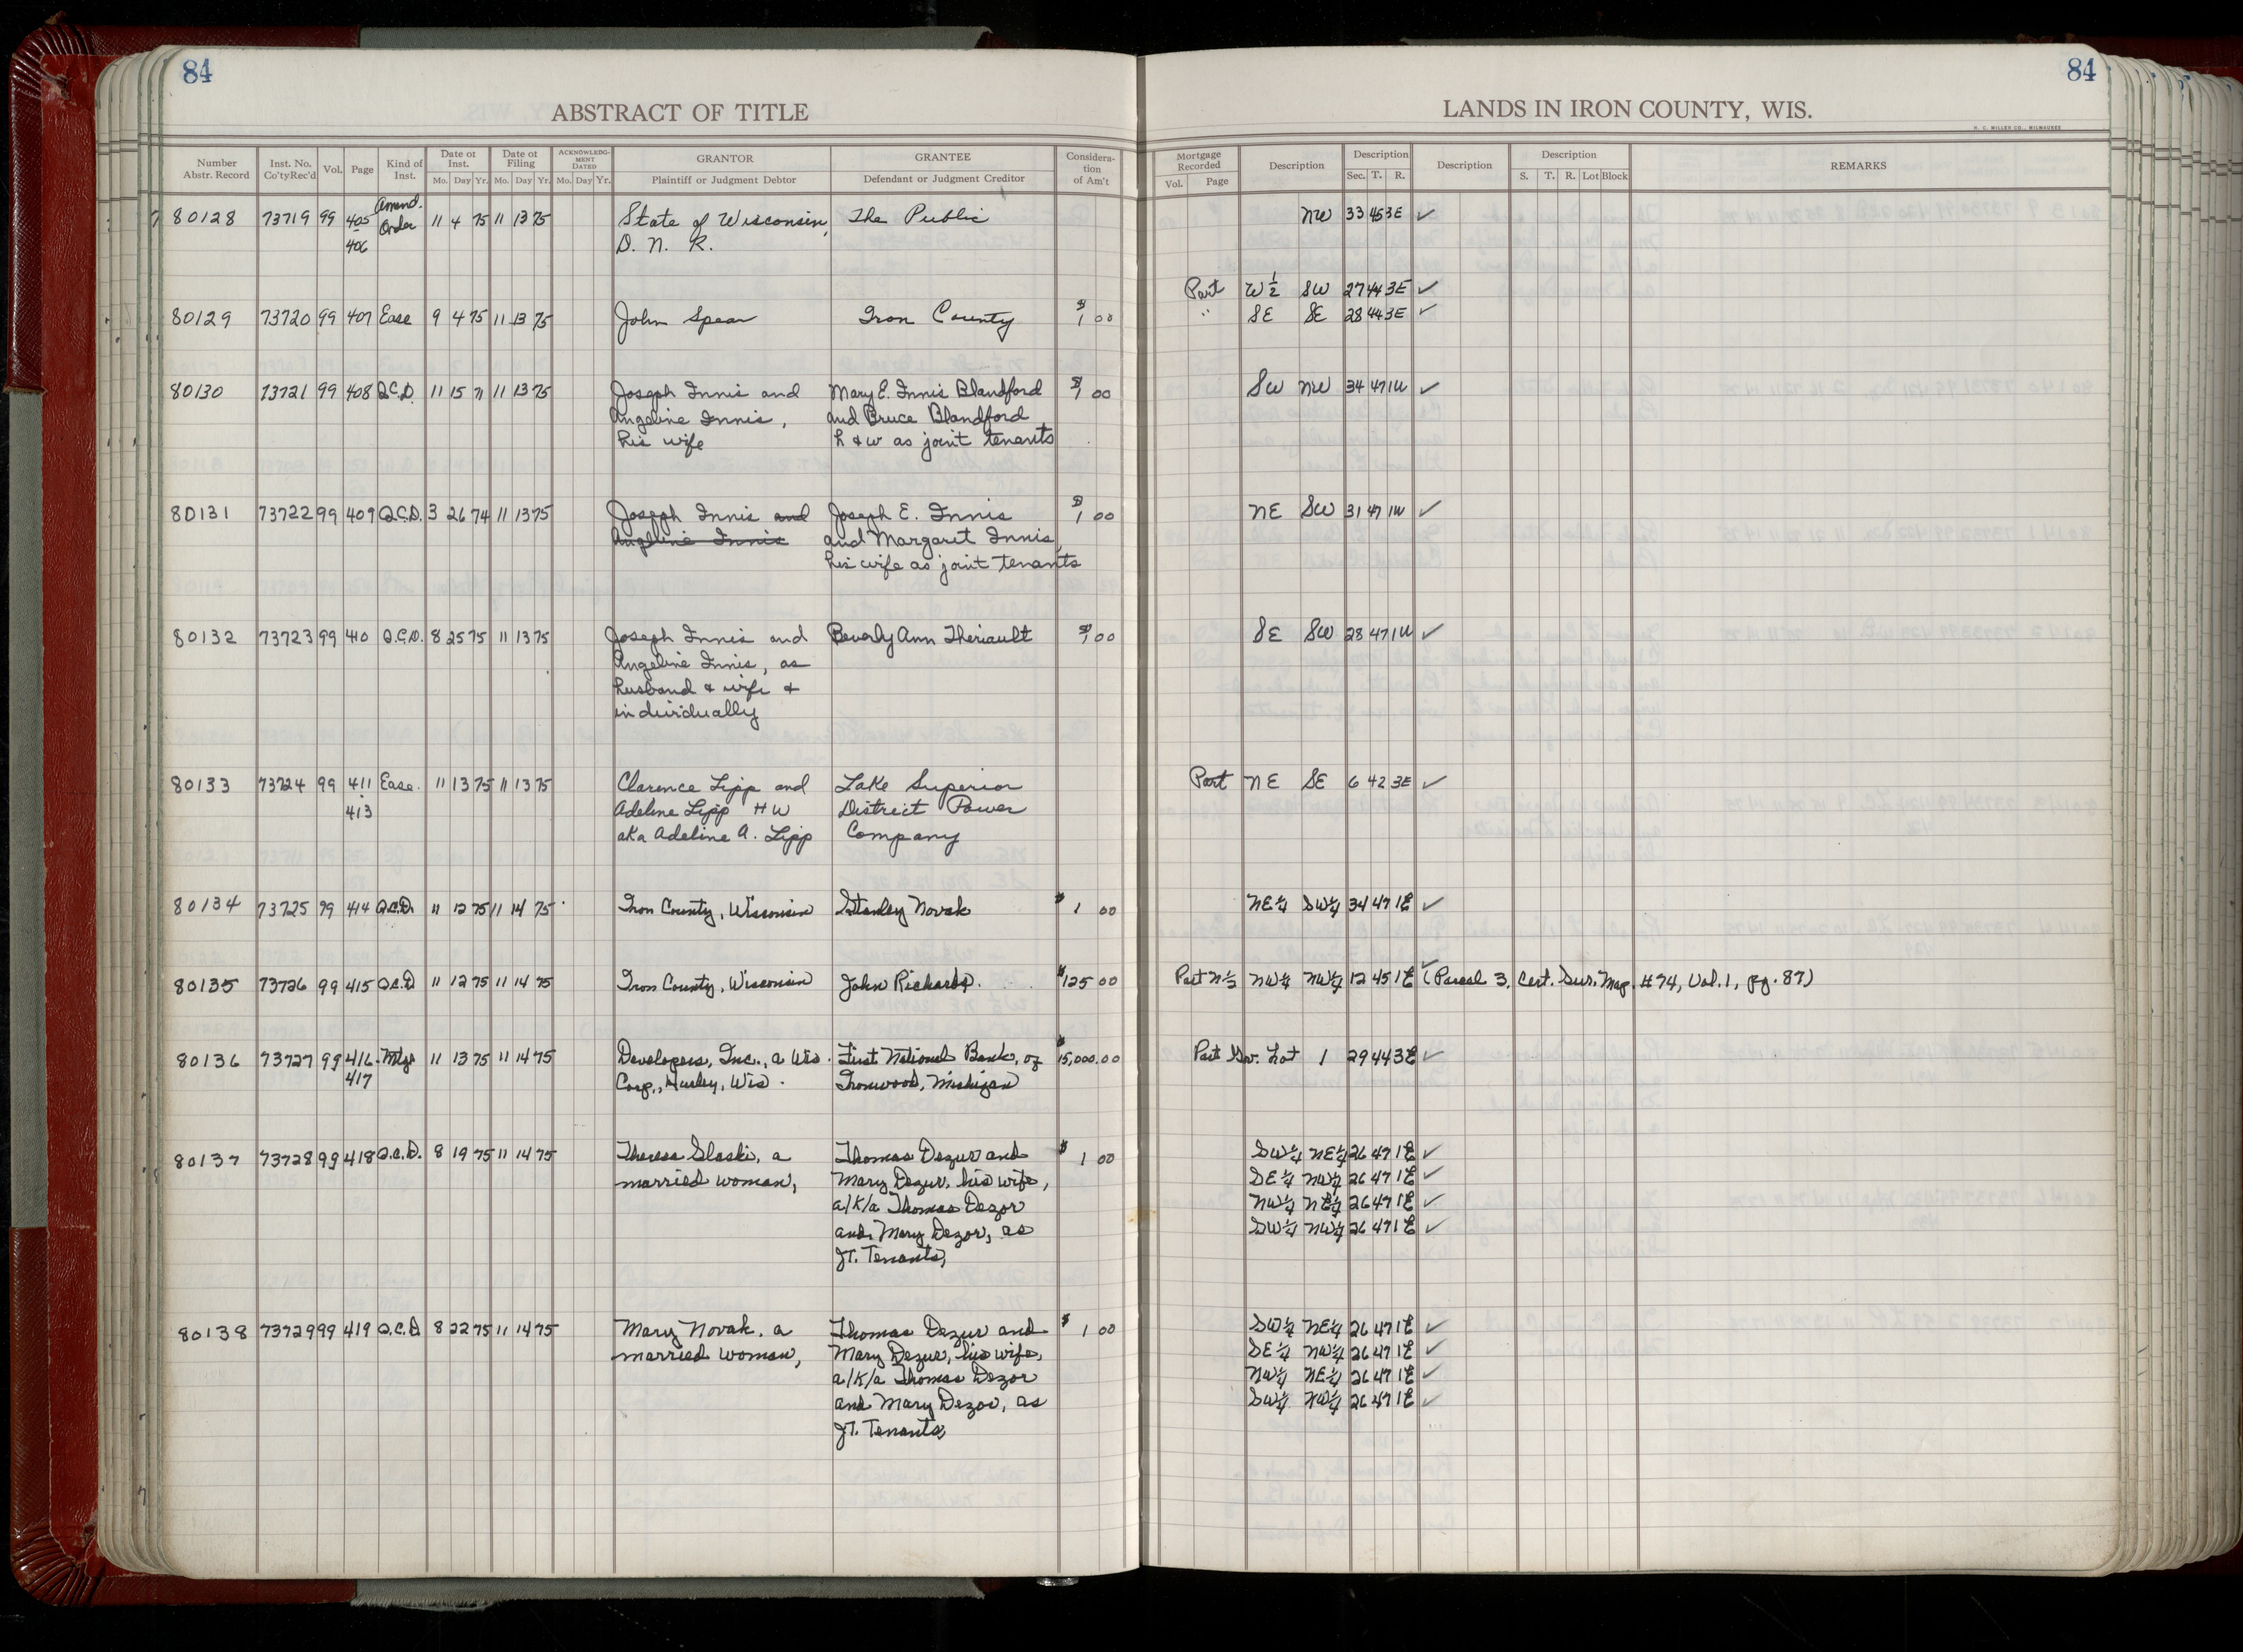 84
84
ABSTRACT OF TITLE
LANDS IN IRON COUNTY, WIS.
H. C. MILLER CO., MILWAUKEE
Number Abstr. Record | Inst. No. Co'ty Rec'd | Vol. | Page | Kind of Inst. | Date of Inst. Mo. Day Yr. | Date of Filing Mo. Day Yr. | ACKNOWLEDGMENT DATED Mo. Day Yr. | GRANTOR Plaintiff or Judgment Debtor | GRANTEE Defendant or Judgment Creditor | Consideration of Am't | Mortgage Recorded Vol. Page | Description | Description Sec. T. R. | Description | Description S. T. R. Lot Block | REMARKS
80128 73719 99 405 Amend. Order 11 4 75 11 13 75 State of Wisconsin, The Public NW 33 45 3E ✓
406 D. N. R.
Part W ½ SW 27 44 3E ✓
80129 73720 99 407 Ease 9 4 75 11 13 75 John Spear Iron County $1 00 " SE SE 28 44 3E ✓
80130 73721 99 408 Q.C.D. 11 15 71 11 13 75 Joseph Innis and Mary E. Innis Blandford $1 00 SW NW 34 47 1W ✓
Angeline Innis, and Bruce Blandford
his wife h & w as joint tenants
80131 73722 99 409 Q.C.D. 3 26 74 11 13 75 Joseph Innis and Joseph E. Innis $1 00 NE SW 31 47 1W ✓
Angeline Innis and Margaret Innis,
his wife as joint tenants
80132 73723 99 410 Q.C.D. 8 25 75 11 13 75 Joseph Innis and Beverly Ann Theriault $1 00 SE SW 28 47 1W ✓
Angeline Innis, as
husband & wife &
individually
80133 73724 99 411 Ease. 11 13 75 11 13 75 Clarence Lipp and Lake Superior Part NE SE 6 42 3E ✓
413 Adeline Lipp H W District Power
aka Adeline A. Lipp Company
80134 73725 99 414 Q.C.D. 11 12 75 11 14 75 Iron County, Wisconsin Stanley Novak $1 00 NE¼ SW¼ 34 47 1E ✓
80135 73726 99 415 Q.C.D 11 12 75 11 14 75 Iron County, Wisconsin John Richards. $125 00 Part N½ NW¼ NW¼ 12 45 1E ✓ (Parcel 3, Cert. Sur. Map. #74, Vol. 1, pg. 87)
80136 73727 99 416- Mtge 11 13 75 11 14 75 Developers, Inc., a Wis. First National Bank, of $15,000.00 Part Gov. Lot 1 29 44 3E ✓
417 Corp., Hurley, Wis. Ironwood, Michigan
80137 73728 99 418 Q.C.D. 8 19 75 11 14 75 Theresa Slaski, a Thomas Dezur and $1 00 SW¼ NE¼ 26 47 1E ✓
married woman, Mary Dezur, his wife, SE¼ NW¼ 26 47 1E ✓
a/k/a Thomas Dezor NW¼ NE¼ 26 47 1E ✓
and Mary Dezor, as SW¼ NW¼ 26 47 1E ✓
JT. Tenants,
80138 73729 99 419 Q.C.D. 8 22 75 11 14 75 Mary Novak, a Thomas Dezur and $1 00 SW¼ NE¼ 26 47 1E ✓
married woman, Mary Dezur, his wife, SE¼ NW¼ 26 47 1E ✓
a/k/a Thomas Dezor NW¼ NE¼ 26 47 1E ✓
and Mary Dezor, as SW¼ NW¼ 26 47 1E ✓
JT. Tenants,